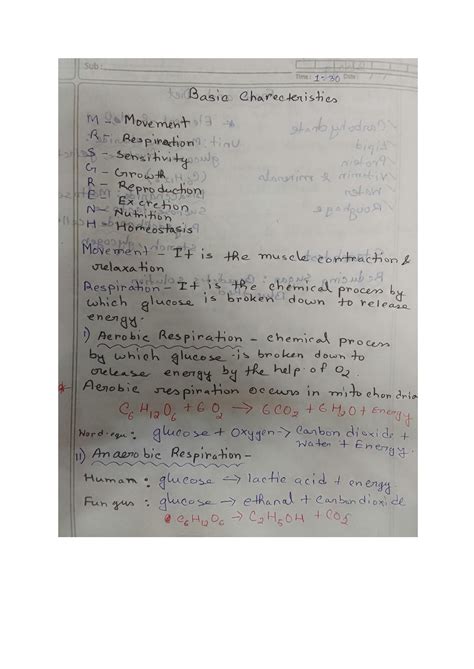 Sub:
Time: 1:30 Date:
Basic Charecteristics
M - Movement
R - Respiration
S - Sensitivity
G - Growth
R - Reproduction
E - Excretion
N - Nutrition
H - Homeostasis
Movement - It is the muscle contraction &
relaxation
Respiration - It is the chemical process by
which glucose is broken down to release
energy.
i) Aerobic Respiration - chemical process
by which glucose is broken down to
release energy by the help of O2.
* Aerobic respiration occurs in mitochondria
C6H12O6 + 6O2 → 6CO2 + 6H2O + Energy
Word equ: glucose + Oxygen → Carbon dioxide +
Water + Energy.
ii) Anaerobic Respiration -
Human: glucose → lactic acid + energy.
Fungus: glucose → ethanal + Carbondioxide
C6H12O6 → C2H5OH + CO2